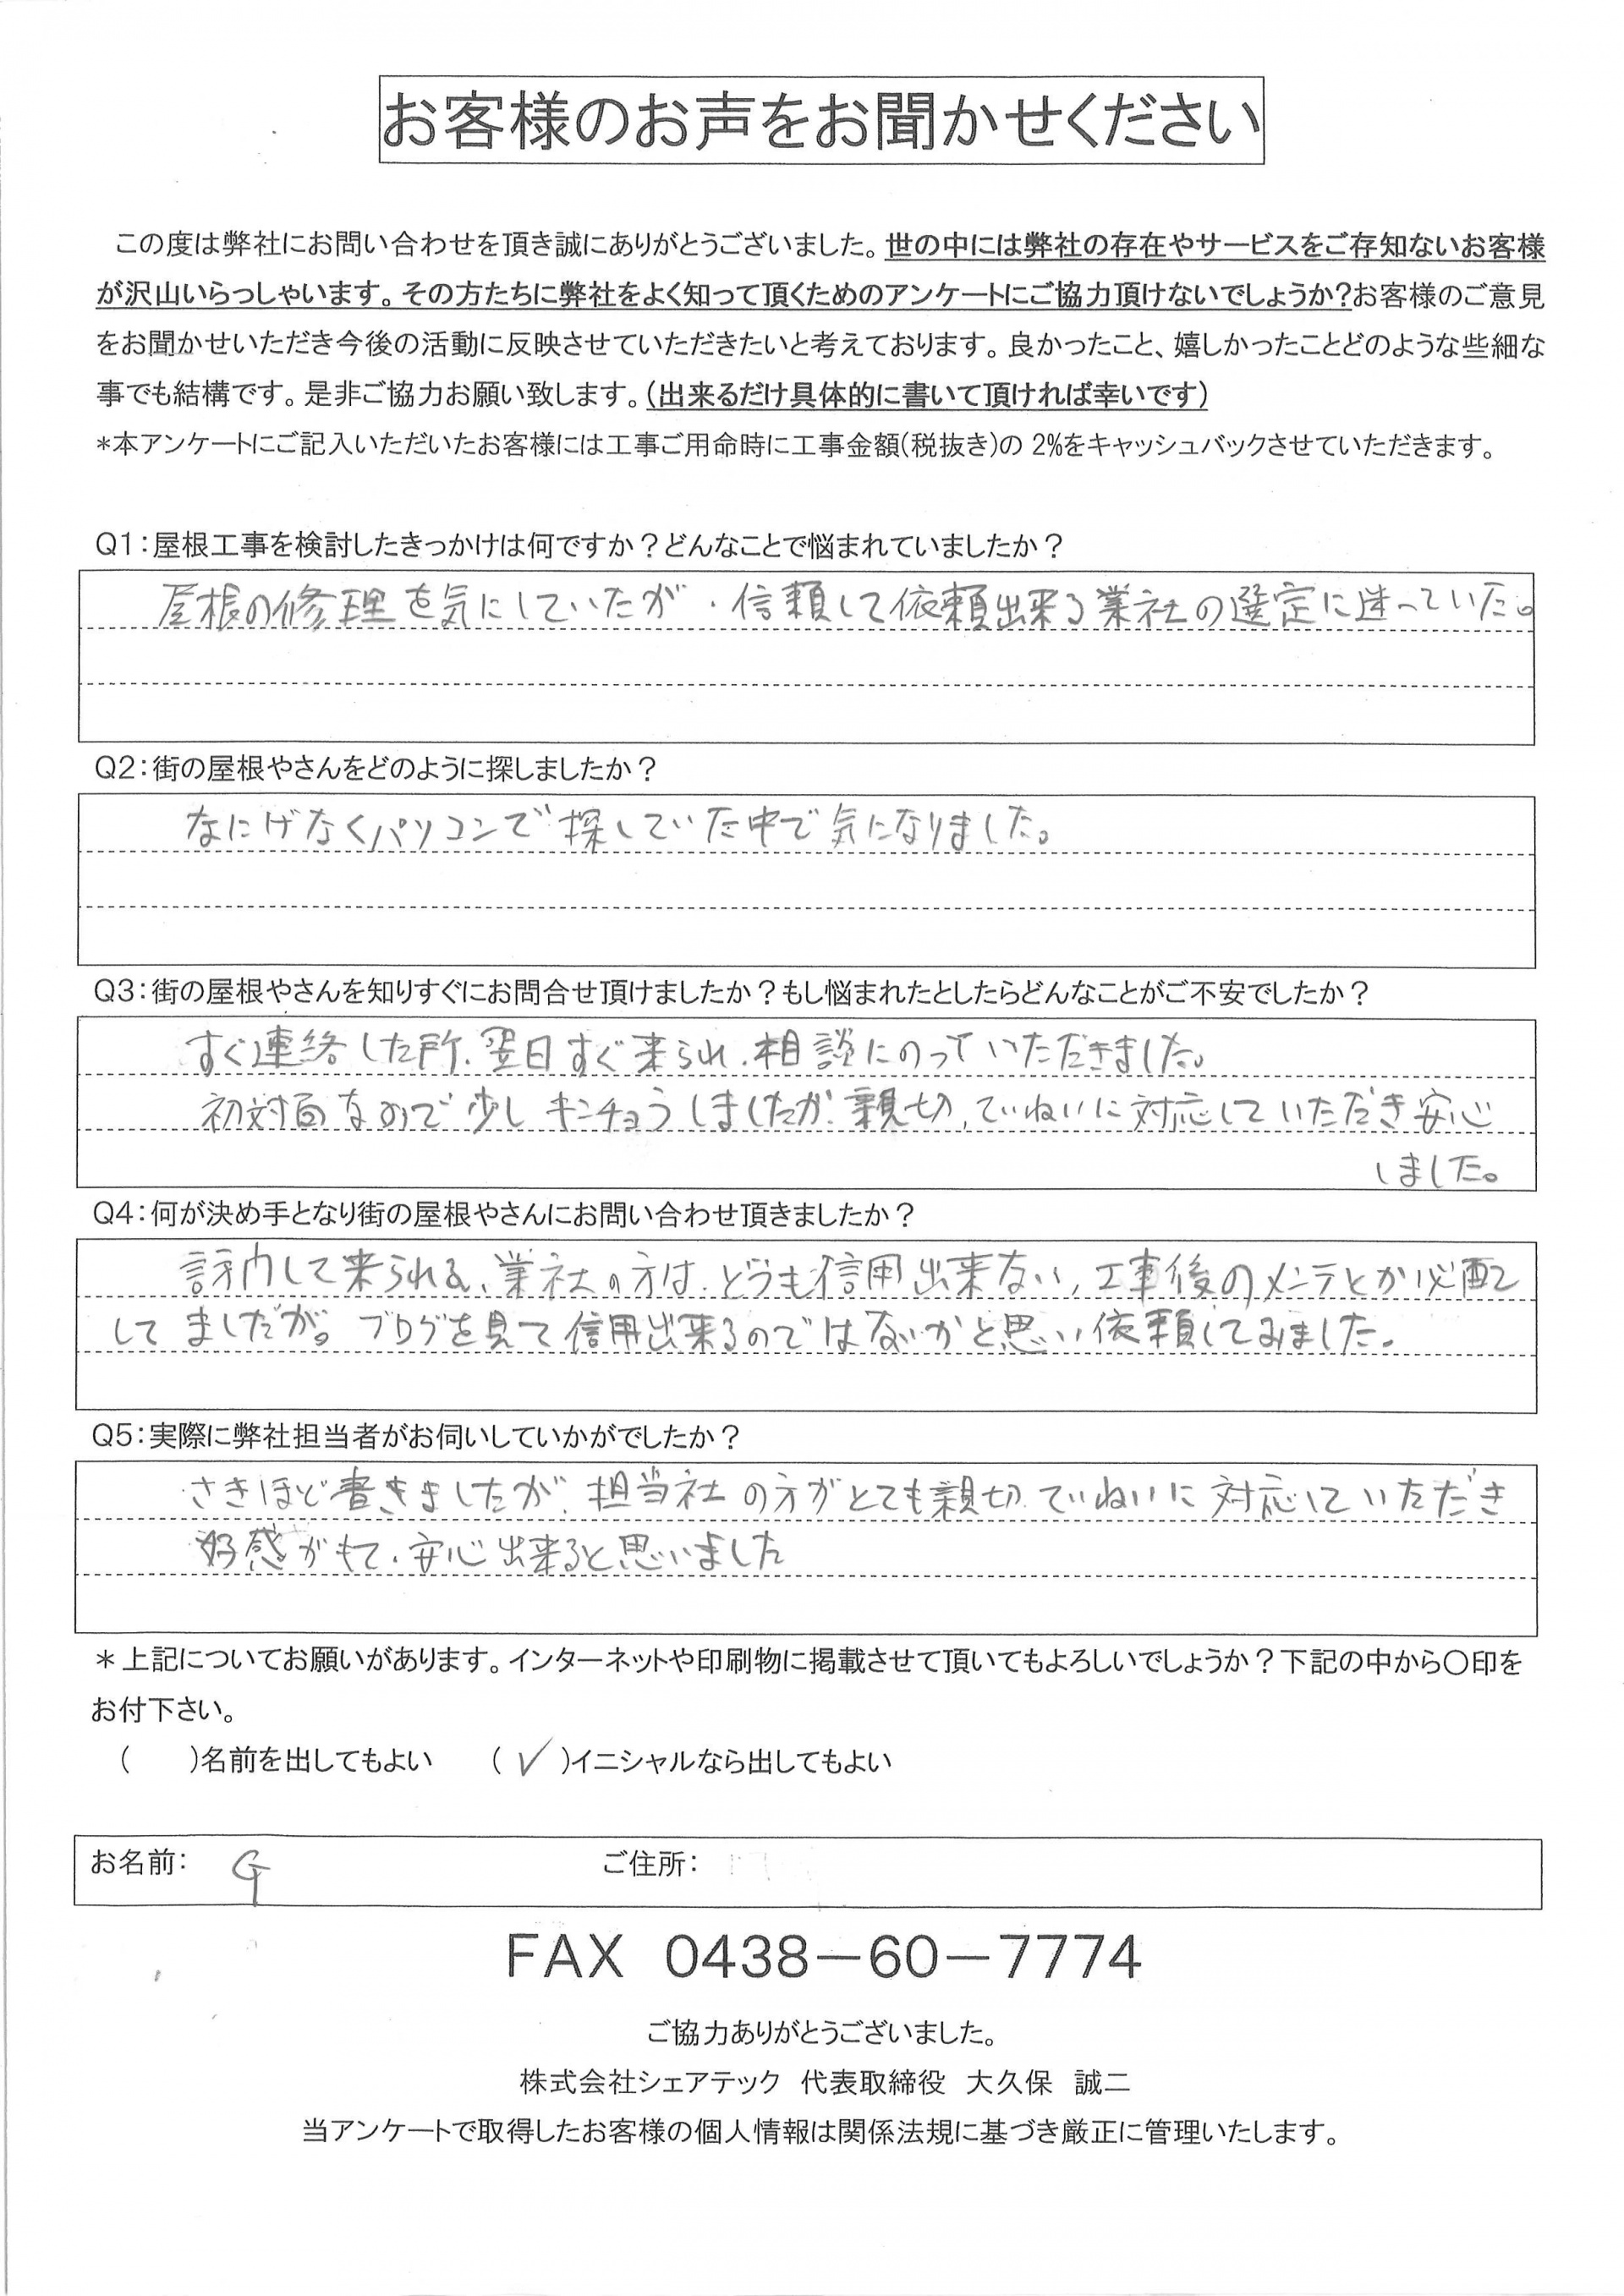 お客様のお声をお聞かせください
この度は弊社にお問い合わせを頂き誠にありがとうございました。世の中には弊社の存在やサービスをご存知ないお客様
が沢山いらっしゃいます。その方たちに弊社をよく知って頂くためのアンケートにご協力頂けないでしょうか?お客様のご意見
をお聞かせいただき今後の活動に反映させていただきたいと考えております。良かったこと、嬉しかったことどのような些細な
事でも結構です。是非ご協力お願い致します。(出来るだけ具体的に書いて頂ければ幸いです)
*本アンケートにご記入いただいたお客様には工事ご用命時に工事金額(税抜き)の 2%をキャッシュバックさせていただきます。
Q1:屋根工事を検討したきっかけは何ですか?どんなことで悩まれていましたか?
屋根の修理を気にしていたが、信頼して依頼出来る業社の選定に迷っていた。
Q2:街の屋根やさんをどのように探しましたか?
なにげなくパソコンで探していた中で気になりました。
Q3:街の屋根やさんを知りすぐにお問合せ頂けましたか?もし悩まれたとしたらどんなことがご不安でしたか?
すぐ連絡した所、翌日すぐ来られ、相談にのっていただきました。
初対面なので少しキンチョウしましたが、親切、ていねいに対応していただき安心
しました。
Q4:何が決め手となり街の屋根やさんにお問い合わせ頂きましたか?
訪内して来られる、業社の方は、どうも信用出来ない、工事後のメンテとか心配
してましたが。ブログを見て信用出来るのではないかと思い依頼してみました。
Q5:実際に弊社担当者がお伺いしていかがでしたか?
さきほど書きましたが、担当社の方がとても親切、ていねいに対応していただき
好感がもて、安心出来ると思いました
*上記についてお願いがあります。インターネットや印刷物に掲載させて頂いてもよろしいでしょうか?下記の中から〇印を
お付下さい。
( )名前を出してもよい (✓)イニシャルなら出してもよい
お名前: G ご住所:
FAX 0438-60-7774
ご協力ありがとうございました。
株式会社シェアテック 代表取締役 大久保 誠二
当アンケートで取得したお客様の個人情報は関係法規に基づき厳正に管理いたします。